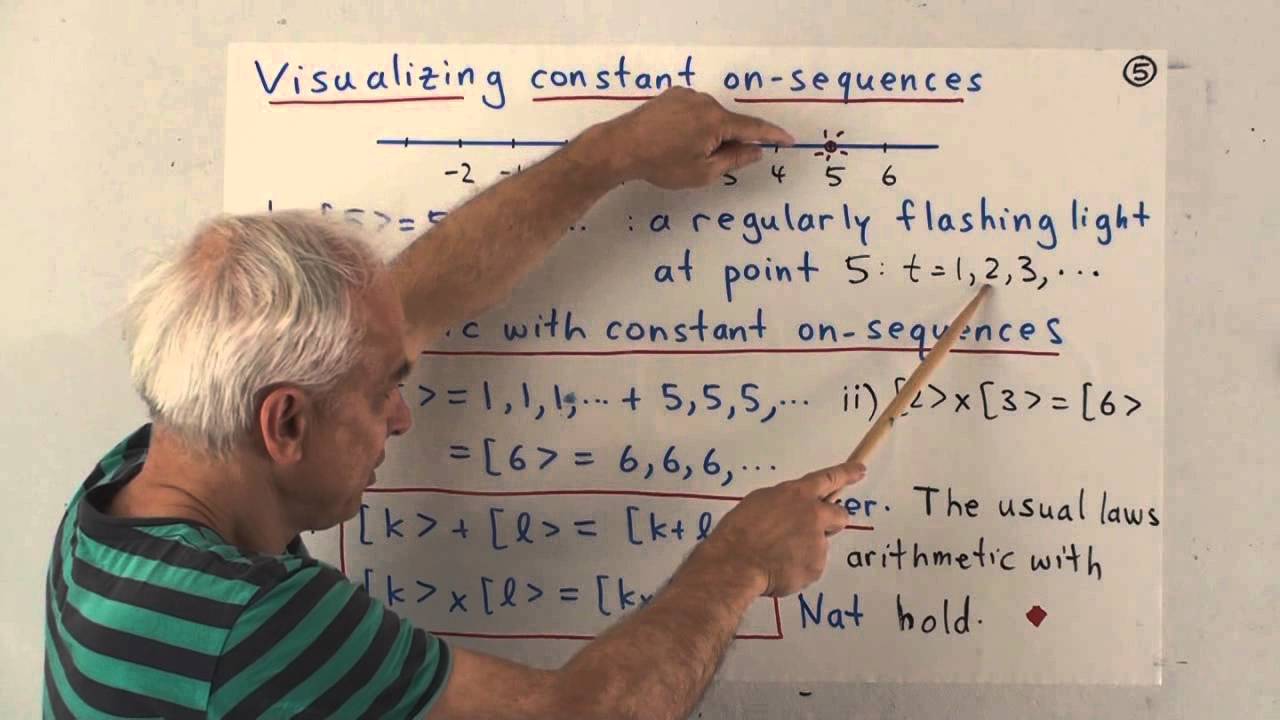 Visualizing constant on-sequences
5
-2 -1 3 4 5 6
[5>= 5 ... : a regularly flashing light
at point 5: t=1,2,3,...
with constant on-sequences
> = 1,1,1,... + 5,5,5,... ii) [2> x [3> = [6>
= [6> = 6,6,6,...
[k> + [l> = [k+l
The usual laws
arithmetic with
[k> x [l> = [kx
Nat hold.